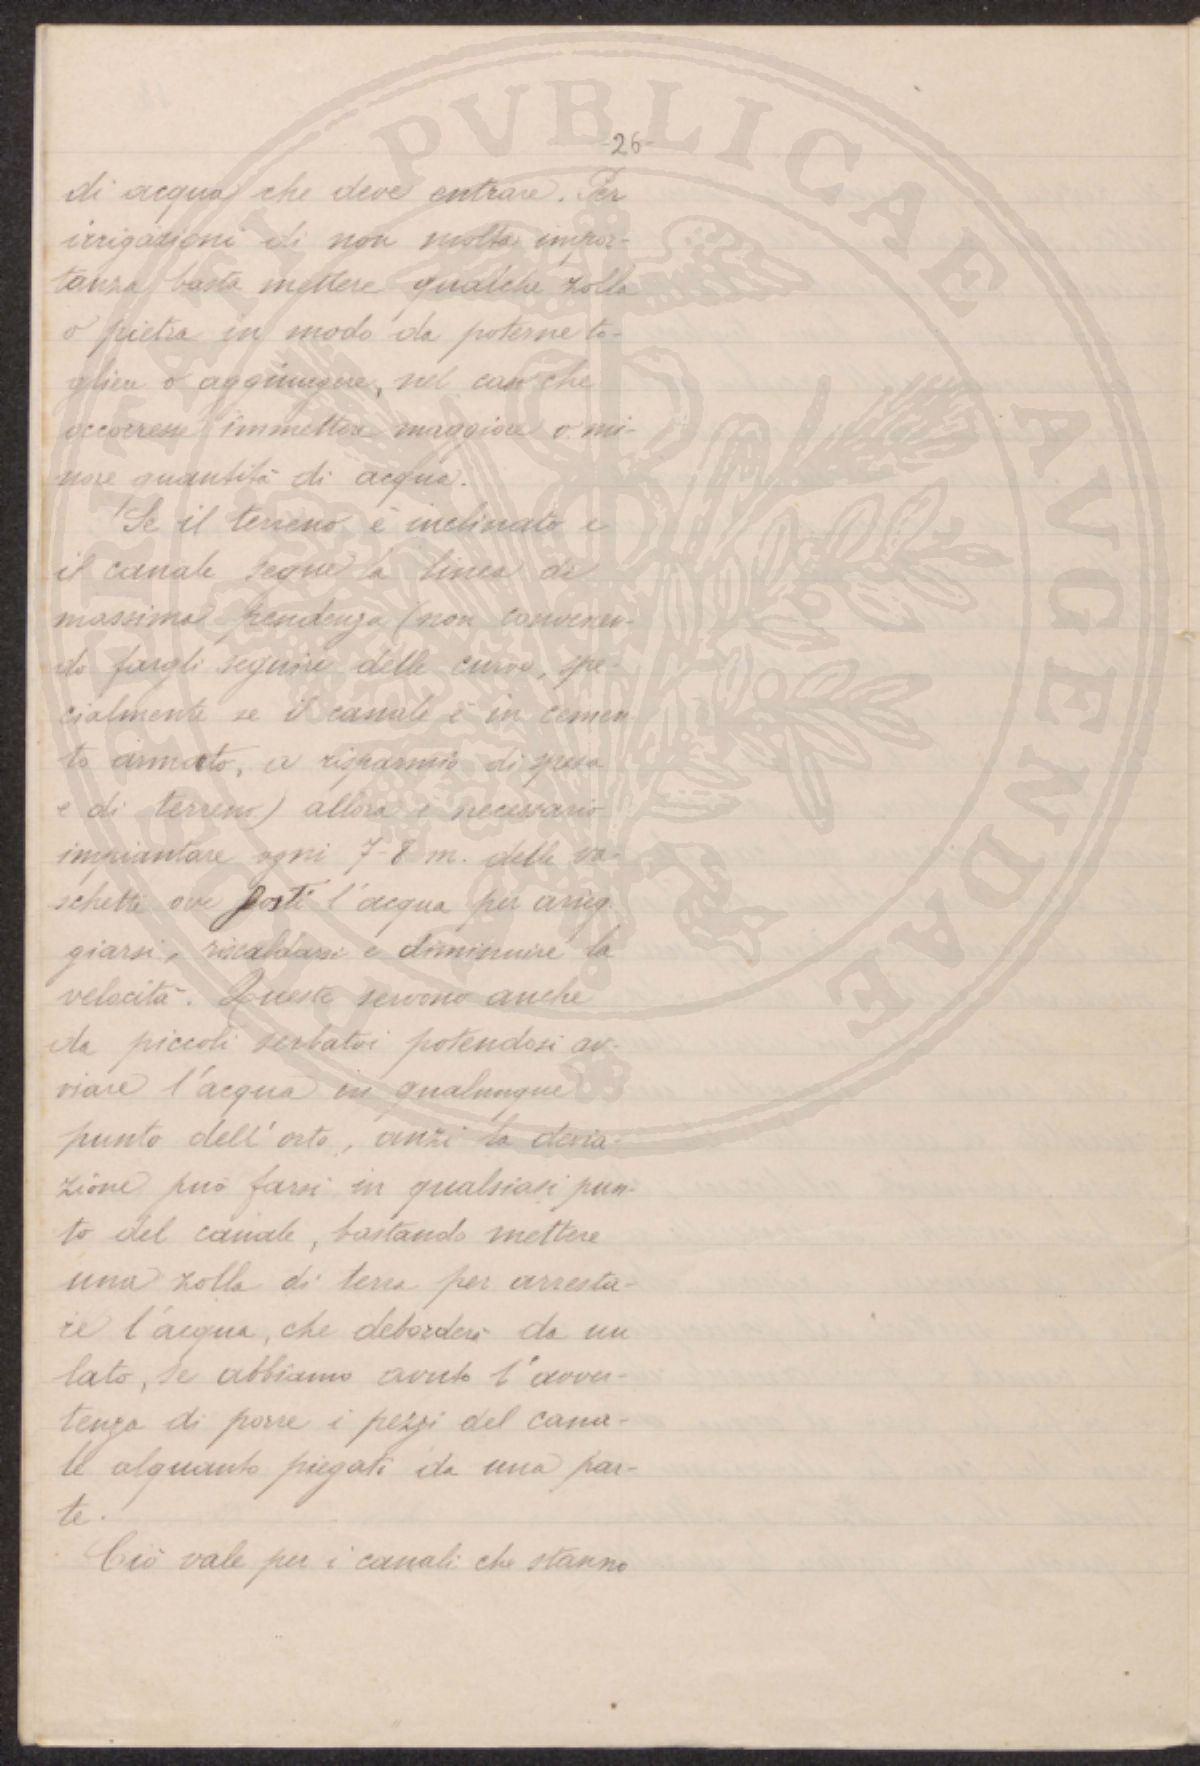 -26-
di acqua che deve entrare. Per
irrigazioni di non molta impor-
tanza basta mettere qualche zolla
o pietra in modo da poterne to-
gliere o aggiungere, nel caso che
occorresse immettere maggiore o mi-
nore quantità di acqua.
Se il terreno è inclinato e
il canale segue la linea di
massima pendenza (non convenen-
do fargli seguire delle curve, spe-
cialmente se il canale è in cemen
to armato, a risparmio di spesa
e di terreno) allora è necessario
impiantare ogni 7-8 m. delle va-
schette ove sosti l'acqua per arieg
giarsi, riscaldarsi e diminuire la
velocità. Queste servono anche
da piccoli serbatoi potendosi av-
viare l'acqua in qualunque
punto dell'orto, anzi la devia-
zione può farsi in qualsiasi pun-
to del canale, bastando mettere
una zolla di terra per arresta-
re l'acqua, che deborderà da un
lato, se abbiamo avuto l'avver-
tenza di porre i pezzi del cana-
le alquanto piegati da una par-
te.
Ciò vale per i canali che stanno
PVBLICAE AVGENDAE